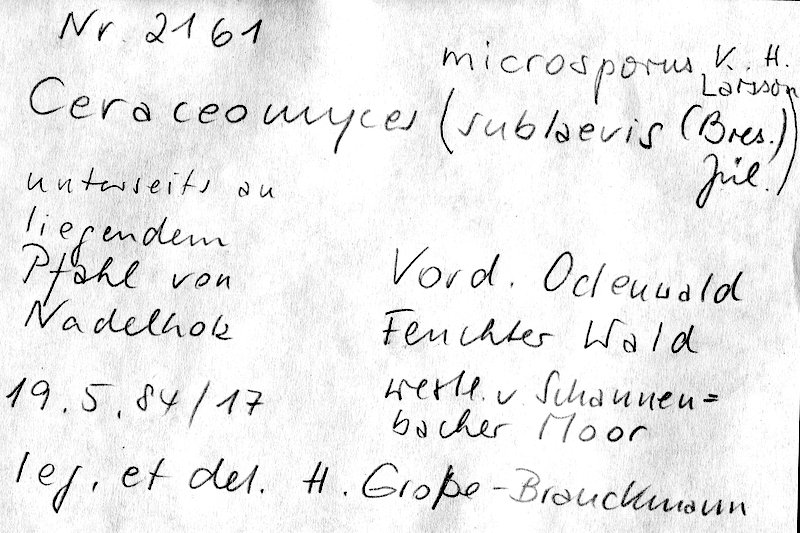 Nr. 2161
microsporus K. H. Larsson
Ceraceomyces (sublaevis (Bres.) Jül.)
unterseits an
liegendem
Pfahl von
Nadelholz
Vord. Odenwald
Feuchter Wald
westl. v. Schannen=
bacher Moor
19.5.84/17
leg. et det. H. Große-Brauckmann